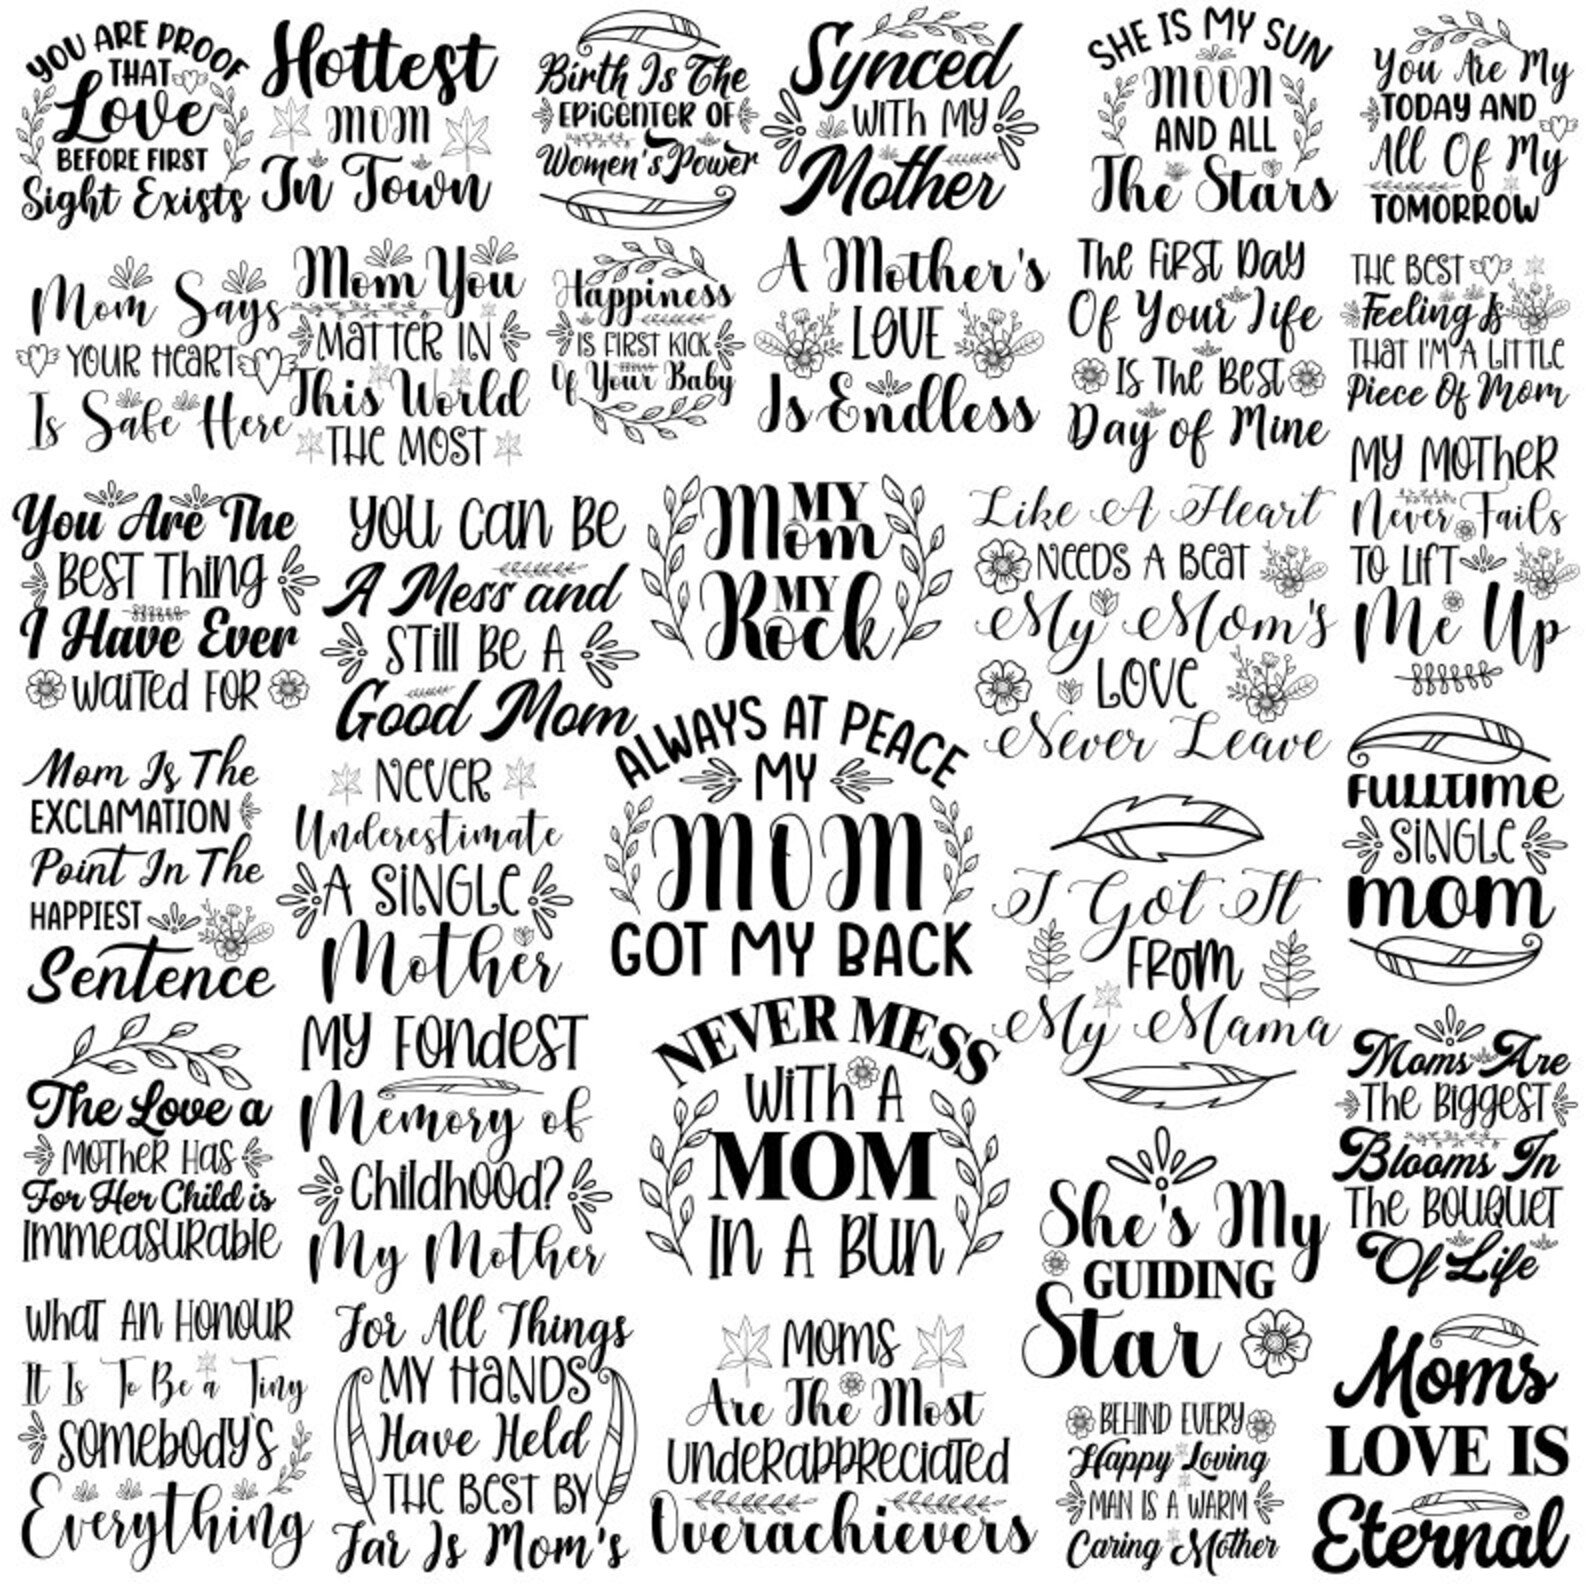 YOU ARE PROOF
THAT
Love
BEFORE FIRST
Sight Exists
Hottest
MOM
In Town
Birth Is The
EPICENTER OF
Women's Power
Synced
WITH MY
Mother
SHE IS MY SUN
MOON
AND ALL
The Stars
You Are My
TODAY AND
All Of My
TOMORROW
Mom Says
YOUR HEART
Is Safe Here
Mom You
MATTER IN
This World
THE MOST
Happiness
IS FIRST KICK
Of Your Baby
A Mother's
LOVE
Is Endless
The First Day
Of Your Life
Is The Best
Day of Mine
THE BEST
Feeling Is
THAT I'M A LITTLE
Piece Of Mom
You Are The
BEST THING
I Have Ever
WAITED FOR
YOU CAN BE
A Mess and
STILL BE A
Good Mom
MY
Mom
MY
Rock
Like A Heart
NEEDS A BEAT
My Mom's
LOVE
Never Leave
MY MOTHER
Never Fails
TO LIFT
Me Up
Mom Is The
EXCLAMATION
Point In The
HAPPIEST
Sentence
NEVER
Underestimate
A SINGLE
Mother
ALWAYS AT PEACE
MY
MOM
GOT MY BACK
I Got It
FROM
My Mama
FULLTIME
SINGLE
MOM
The Love a
MOTHER HAS
For Her Child is
IMMEASURABLE
MY FONDEST
Memory of
Childhood?
My Mother
NEVER MESS
WITH A
MOM
IN A BUN
She's My
GUIDING
Star
Moms Are
THE BIGGEST
Blooms In
THE BOUQUET
Of Life
WHAT AN HONOUR
It Is To Be a Tiny
SOMEBODY'S
Everything
For All Things
MY HANDS
Have Held
THE BEST BY
Far Is Mom's
MOMS
Are The Most
UNDERAPPRECIATED
Overachievers
BEHIND EVERY
Happy Loving
MAN IS A WARM
Caring Mother
Moms
LOVE IS
Eternal